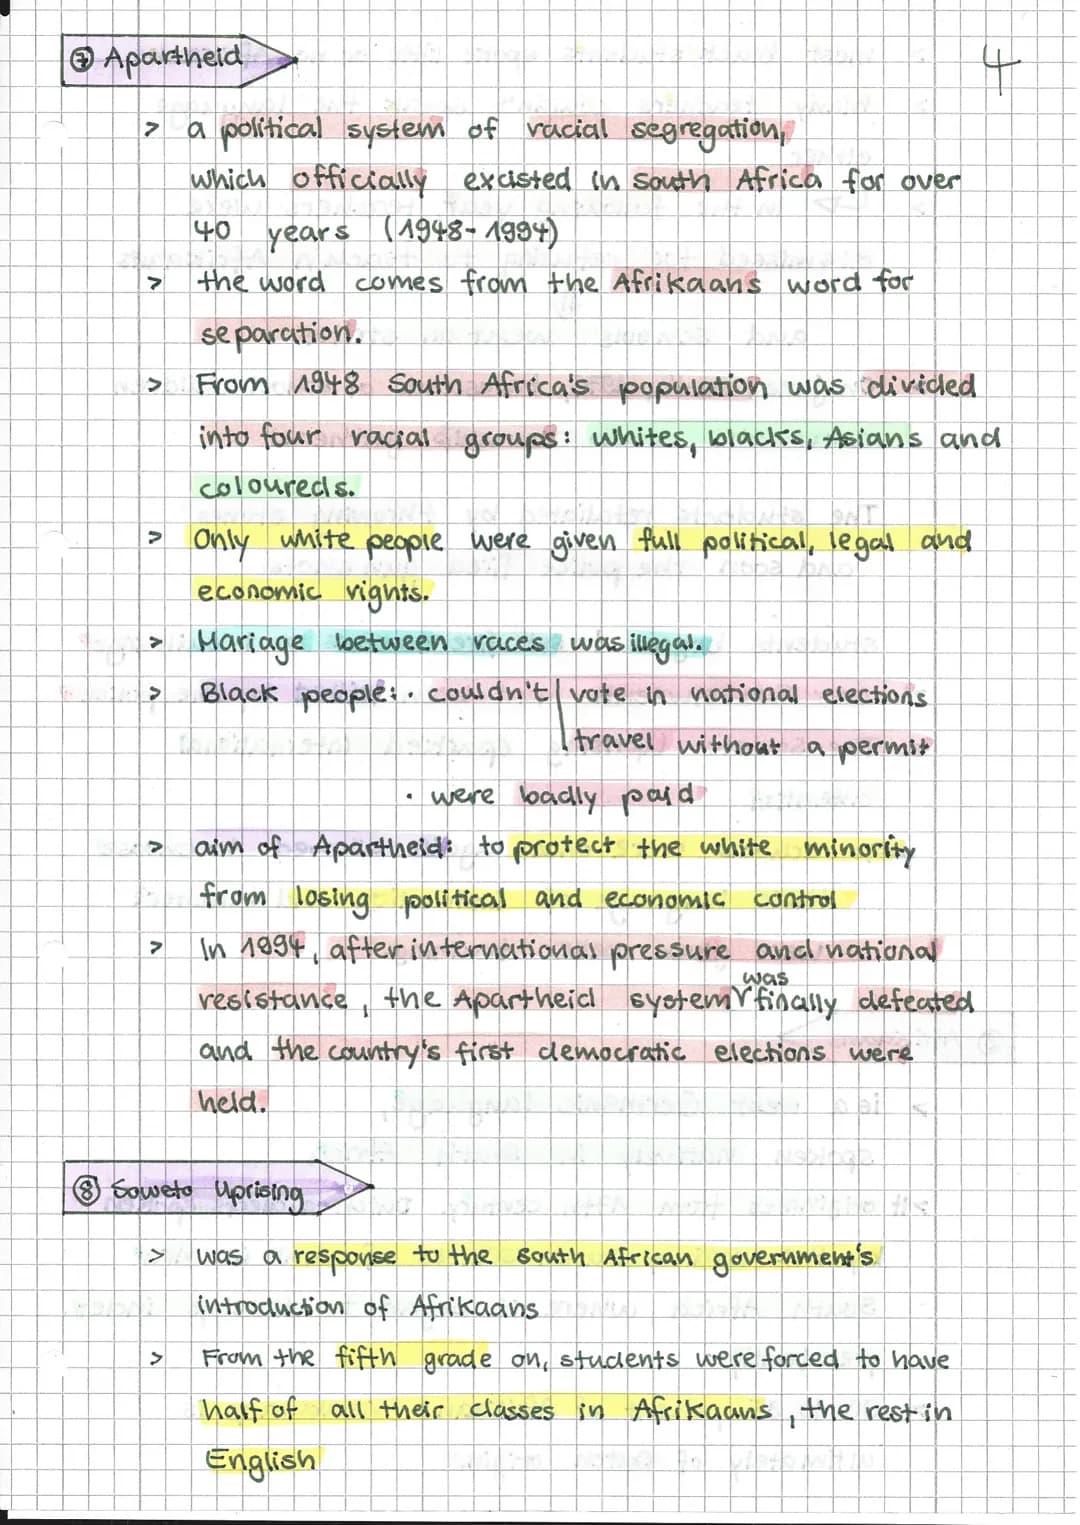 ⑦ Apartheid
4
> a political system of racial segregation,
which officially excisted in South Africa for over
40 years (1948-1994)
> the word comes from the Afrikaans word for
separation.
> From 1948 South Africa's population was divided
into four racial groups: whites, blacks, Asians and
coloureds.
> Only white people were given full political, legal and
economic rights.
> Mariage between races was illegal.
> Black people: · couldn't | vote in national elections
travel without a permit
· were badly paid
> aim of Apartheid: to protect the white minority
from losing political and economic control
> In 1994, after international pressure and national
was
resistance, the Apartheid system finally defeated
and the country's first democratic elections were
held.
⑧ Soweto Uprising
> was a response to the South African government's
introduction of Afrikaans
> From the fifth grade on, students were forced to have
half of all their classes in Afrikaans, the rest in
English